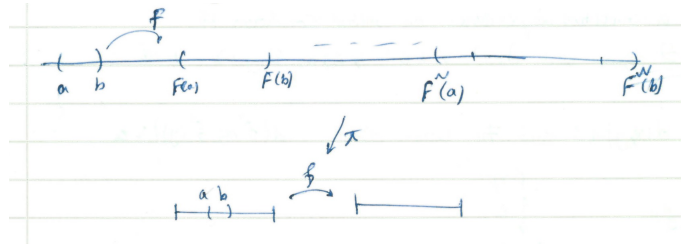 F
a b F(a) F(b) F^N(a) F^N(b)
π
a b f